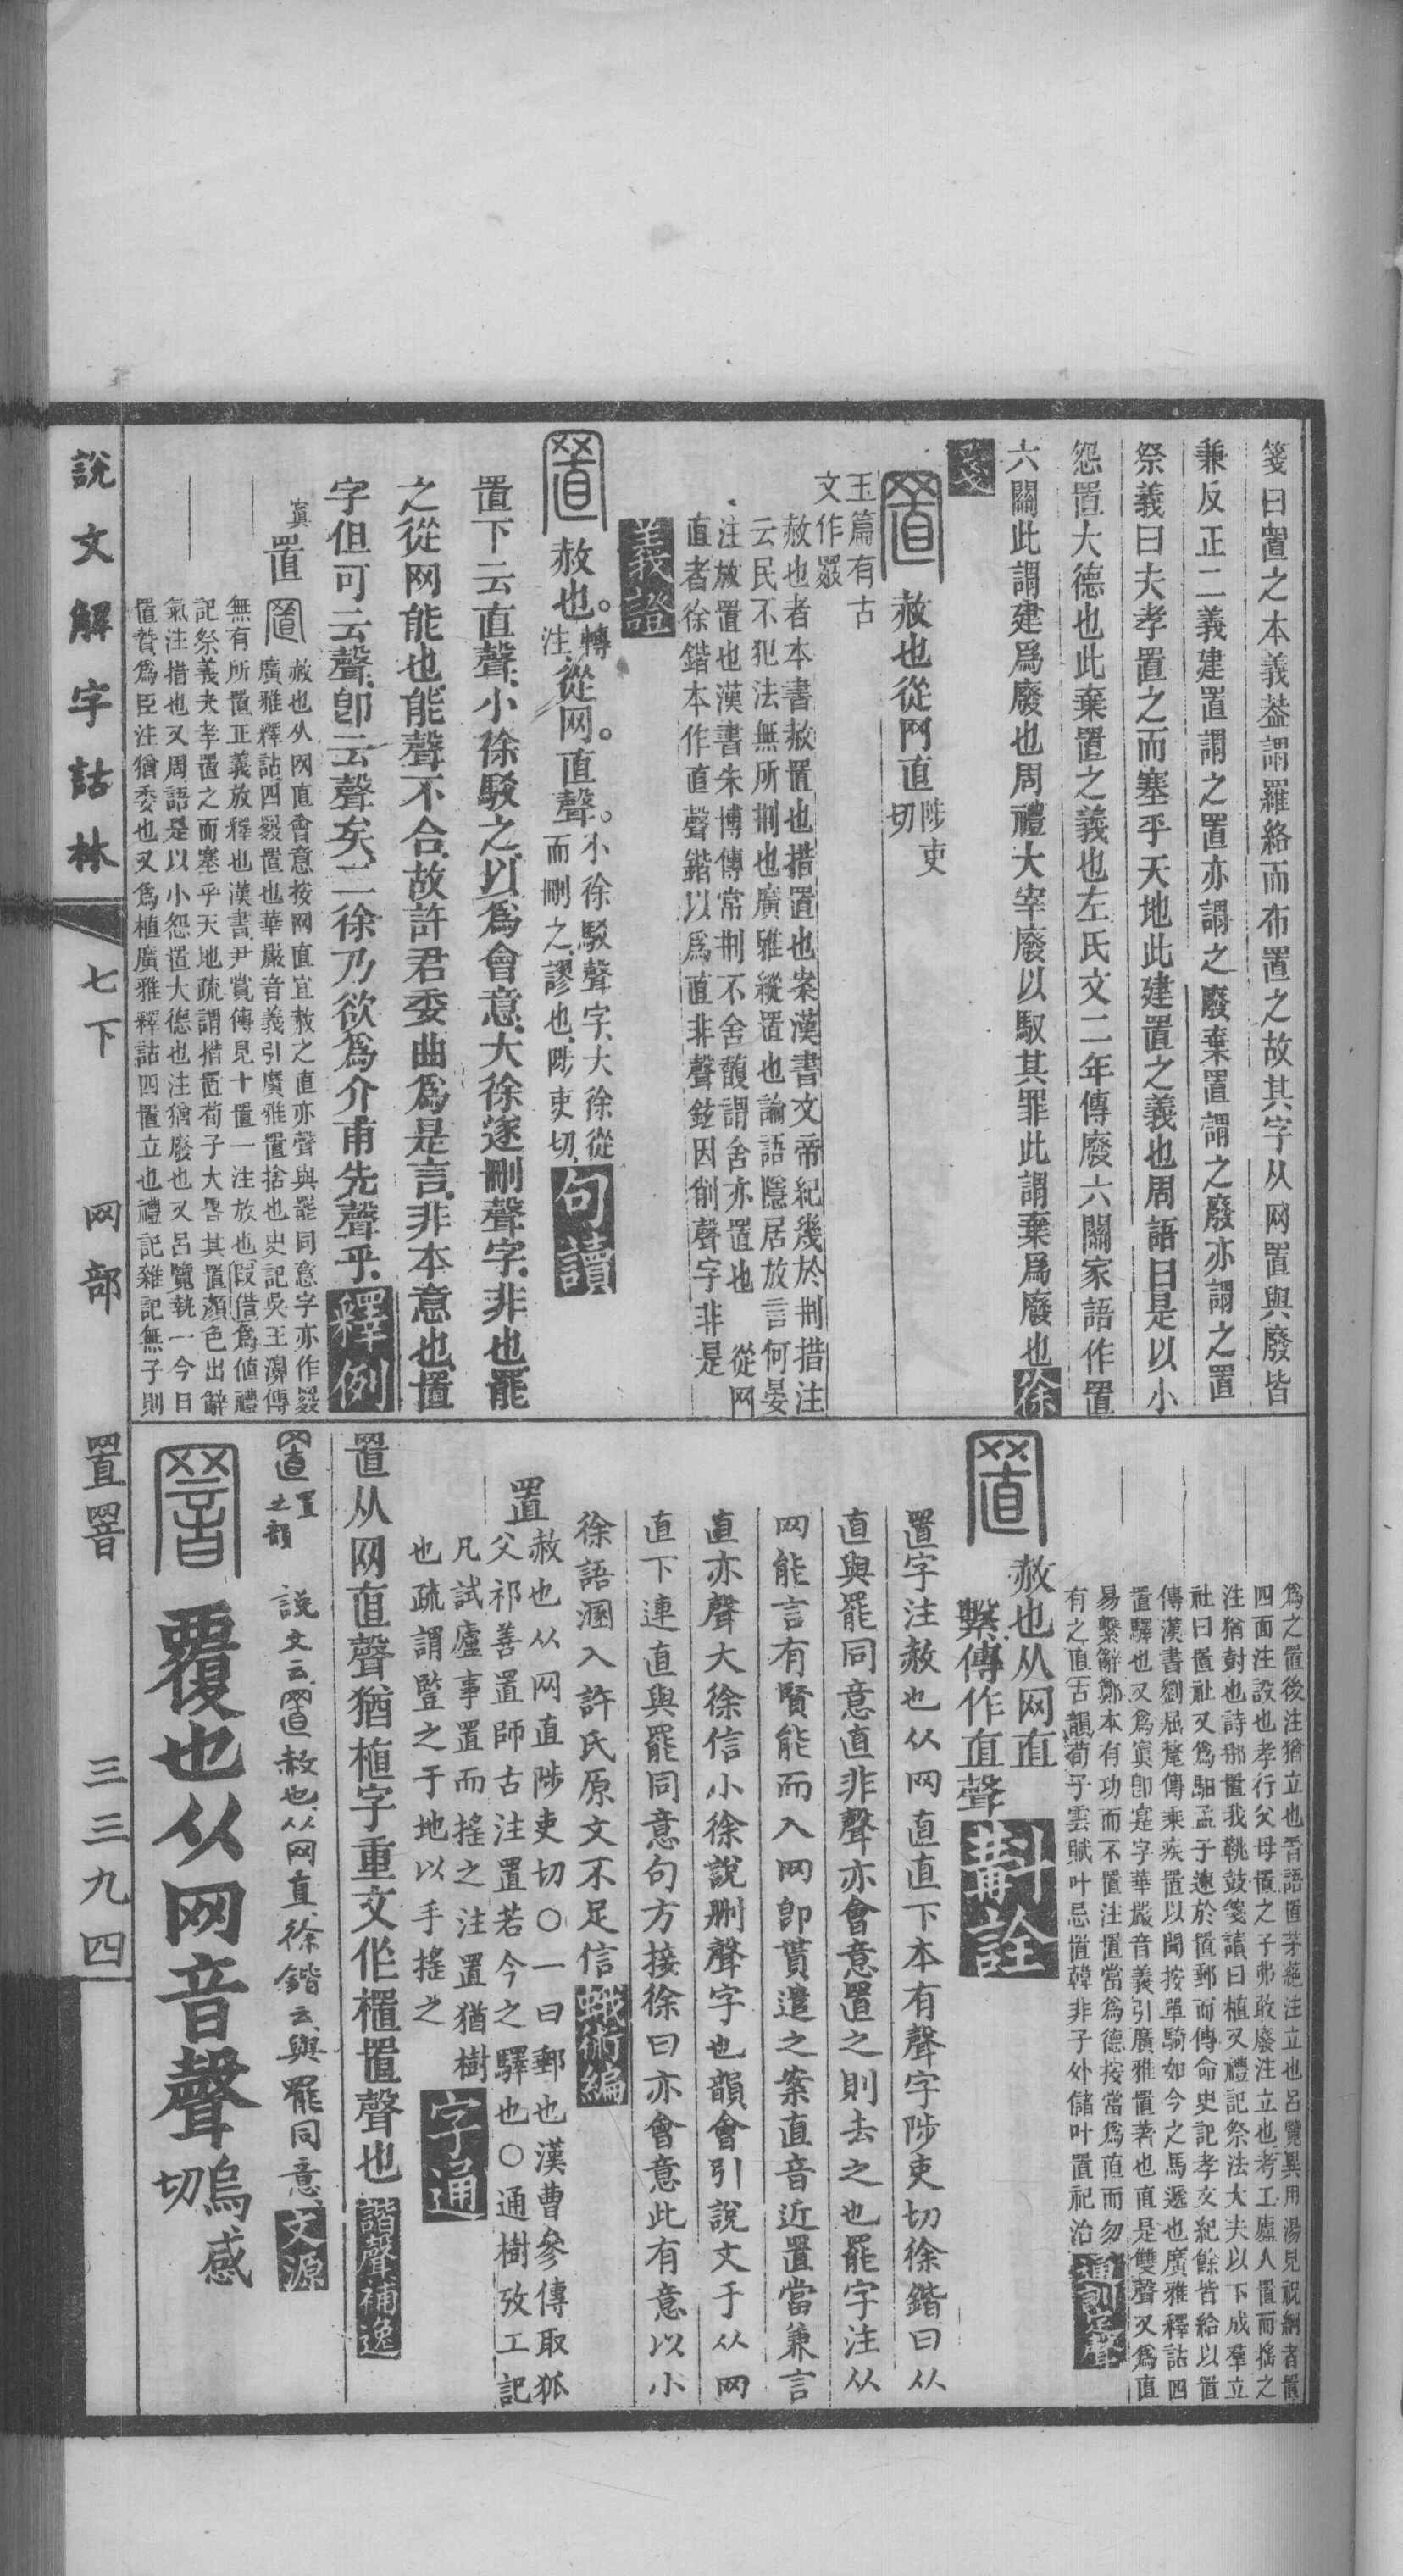 箋曰置之本義葢謂羅絡而布置之故其字从网置與廢皆
兼反正二義建置謂之置亦謂之廢棄置謂之廢亦謂之置
祭義曰夫孝置之而塞乎天地此建置之義也周語曰是以小
怨置大德也此棄置之義也左氏文二年傳廢六關家語作置
六關此謂建爲廢也周禮大宰廢以馭其罪此謂棄爲廢也徐
箋
赦也從网直陟吏切
玉篇有古文作罬
赦也者本書赦置也措置也案漢書文帝紀幾於刑措注
云民不犯法無所刑也廣雅縱置也論語隱居放言何晏
注放置也漢書朱博傳常刑不舍顏謂舍亦置也 從网
直者徐鍇本作直聲鍇以爲直非聲鉉因削聲字非是
義證
赦也。轉注從网。直聲。小徐駁聲字、大徐從而刪之、謬也、陟吏切、句讀
置下云直聲、小徐駁之、以爲會意、大徐遂刪聲字、非也、罷
之從网能也、能聲不合、故許君委曲爲是言、非本意也、置
字但可云聲、卽云聲矣、二徐乃欲爲介甫先聲乎、釋例
置
赦也从网直會意按网直宜赦之直亦聲與罷同意字亦作罬
廣雅釋詁四罬置也華嚴音義引廣雅置捨也史記吳王濞傳
無有所置正義放釋也漢書尹賞傳見十置一注放也假借爲値禮
記祭義夫孝置之而塞乎天地疏謂措置荀子大畧其置顏色出辭
氣注措也又周語是以小怨置大德也注猶廢也又呂覽執一今日
置贄爲臣注猶委也又爲植廣雅釋詁四置立也禮記雜記無子則
說文解字詁林 七下 网部 置罯 三三九四
爲之置後注猶立也晉語置茅蕝注立也呂覽異用湯見祝網者置
四面注設也孝行父母置之子弗敢廢注立也考工廬人置而搖之
注猶尌也詩那置我鞉鼓箋讀曰植又禮記祭法大夫以下成羣立
社曰置社又爲馹孟子速於置郵而傳命史記孝文紀餘皆給以置
傳漢書劉屈氂傳乘疾置以聞按單騎如今之馬遞也廣雅釋詁四
置驛也又爲寘卽寔字華嚴音義引廣雅置著也直是雙聲又爲直
易繫辭鄭本有功而不置注置當爲德按當爲直而勿
有之直古韻荀子雲賦叶忌置韓非子外儲叶置祀治通訓定聲
赦也从网直
繫傳作直聲斠詮
置字注赦也从网直直下本有聲字陟吏切徐鍇曰从
直與罷同意直非聲亦會意置之則去之也罷字注从
网能言有賢能而入网卽貰遣之案直音近置當兼言
直亦聲大徐信小徐說删聲字也韻會引說文于从网
直下連直與罷同意句方接徐曰亦會意此有意以小
徐語溷入許氏原文不足信蛾術編
置
赦也从网直陟吏切○一曰郵也漢曹參傳取狐
父祁善置師古注置若今之驛也○通樹攷工記
凡試廬事置而搖之注置猶樹
也疏謂豎之于地以手搖之字通
置从网直聲猶植字重文作㯰置聲也諧聲補逸
置之韻
說文云、置赦也、从网直、徐鍇云、與罷同意、文源
覆也从网音聲烏感切